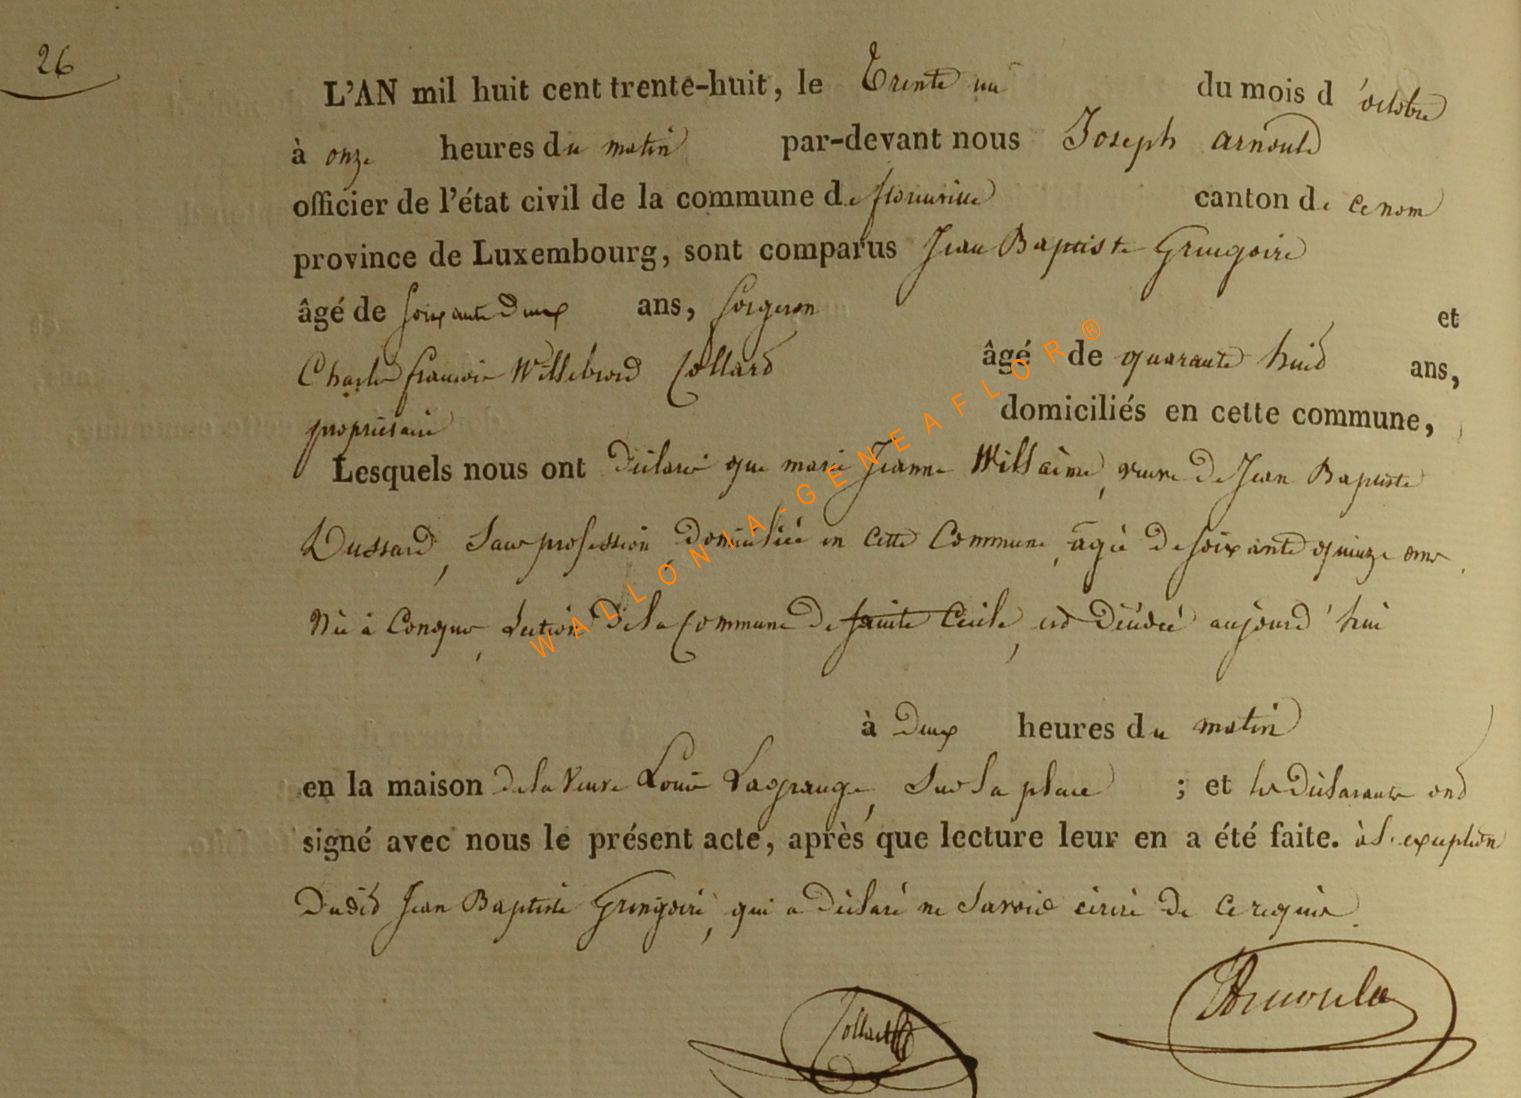 26
L'AN mil huit cent trente-huit, le Trente un du mois d'octobre
à onze heures du matin par-devant nous Joseph arnould
officier de l'état civil de la commune de florenville canton de ce nom
province de Luxembourg, sont comparus Jean Baptiste Gringoire
âgé de soixante deux ans, forgeron et
Charles françois Willebrord Collard âgé de quarante huit ans,
propriétaire domiciliés en cette commune,
Lesquels nous ont déclaré que marie Jeanne Willaime, veuve de Jean Baptiste
Dussard, sans profession, domiciliée en cette Commune, agée de soixante quinze ans,
née à Conques, section de la Commune de sainte Cécile, est décédée aujourd'hui
à deux heures du matin
en la maison de la Veuve Louis Lagrange, sur la place ; et les déclarants ont
signé avec nous le présent acte, après que lecture leur en a été faite. à l'exception
dudit Jean Baptiste Gringoire, qui a déclaré ne savoir écrire de ce requis.
Collard
Arnould
WALLONIA-GENEAFLOR®